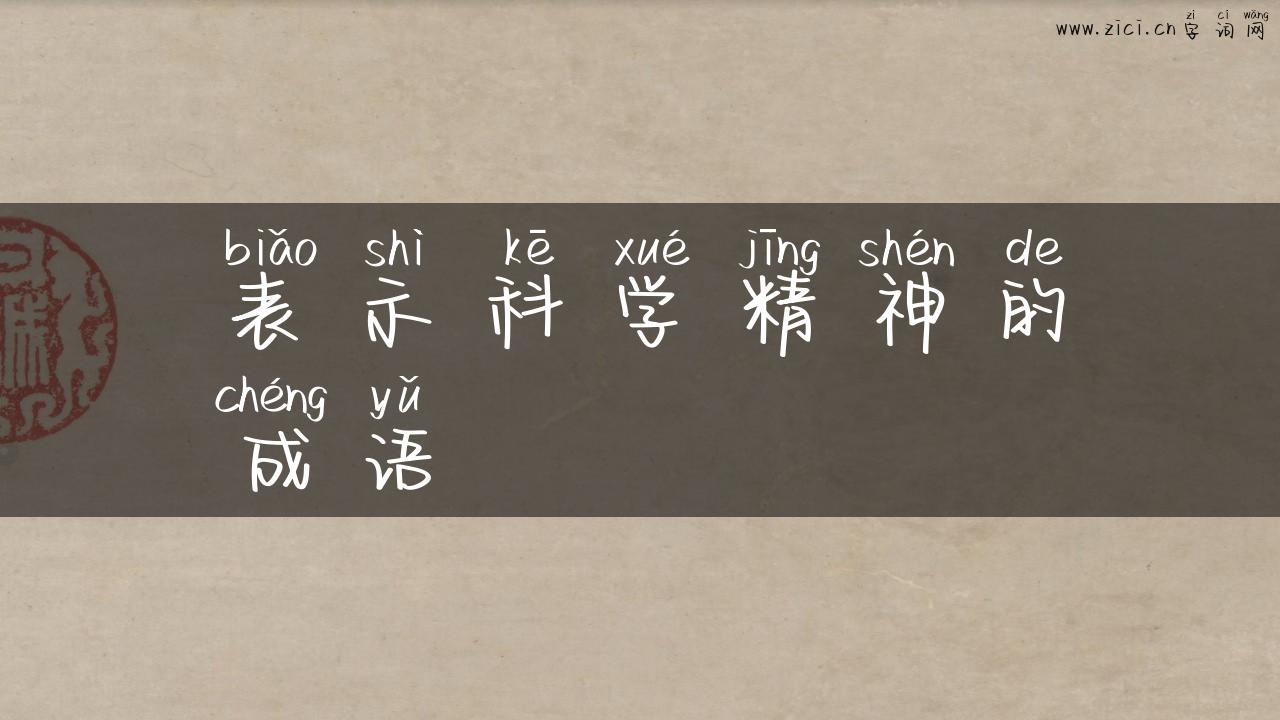 zì cí wǎng
www.zici.cn 字词网
biǎo shì kē xué jīng shén de
表示科学精神的
chéng yǔ
成语